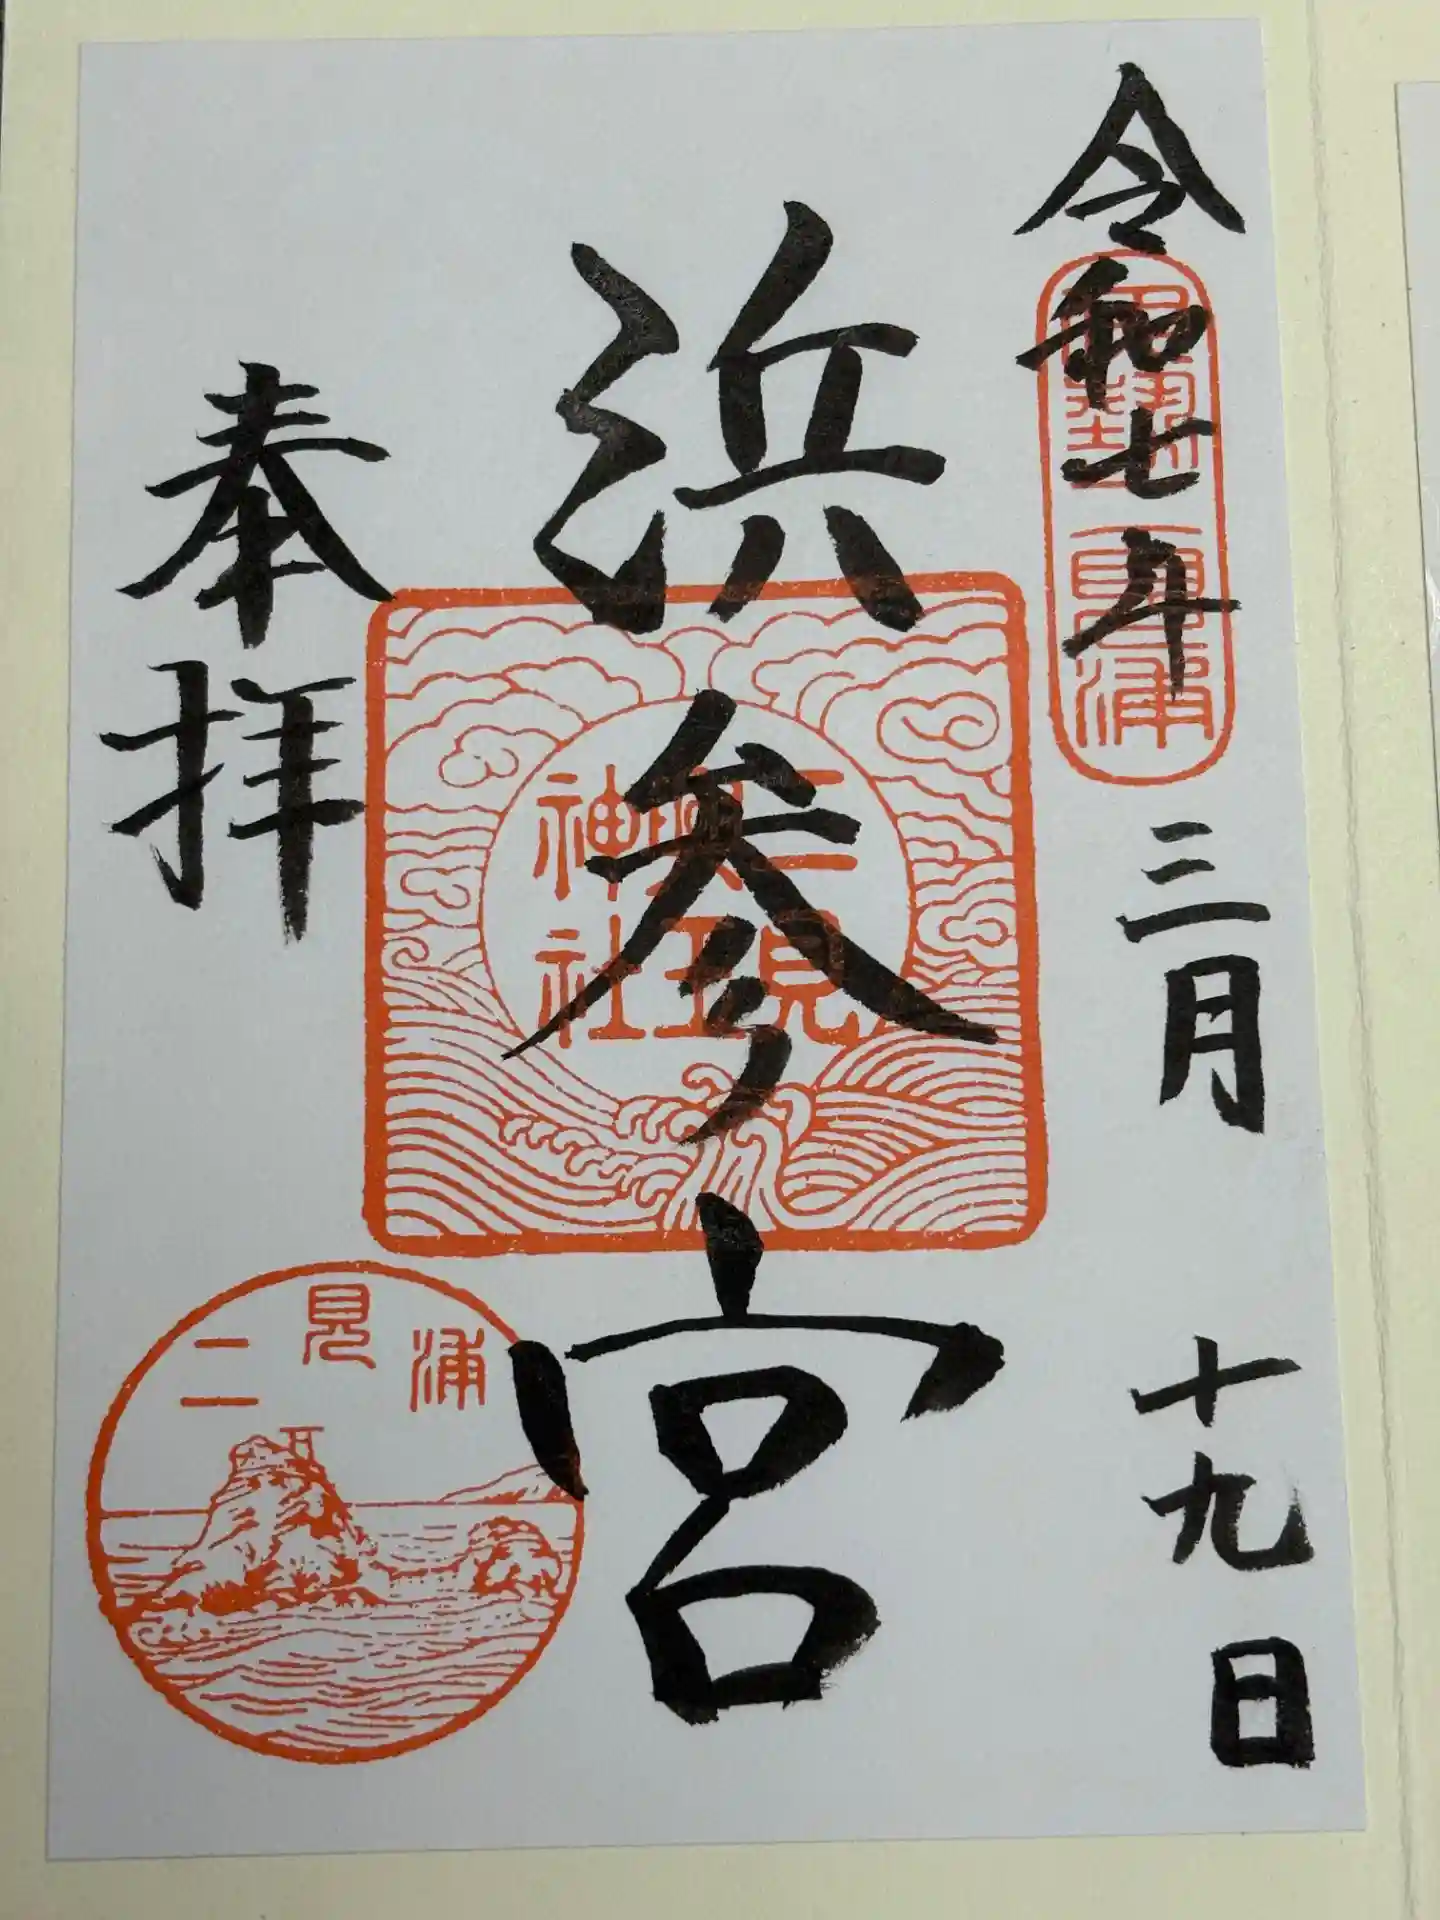 令和七年三月十九日
伊勢二見浦
浜参宮
二見興玉神社
奉拝
二見浦